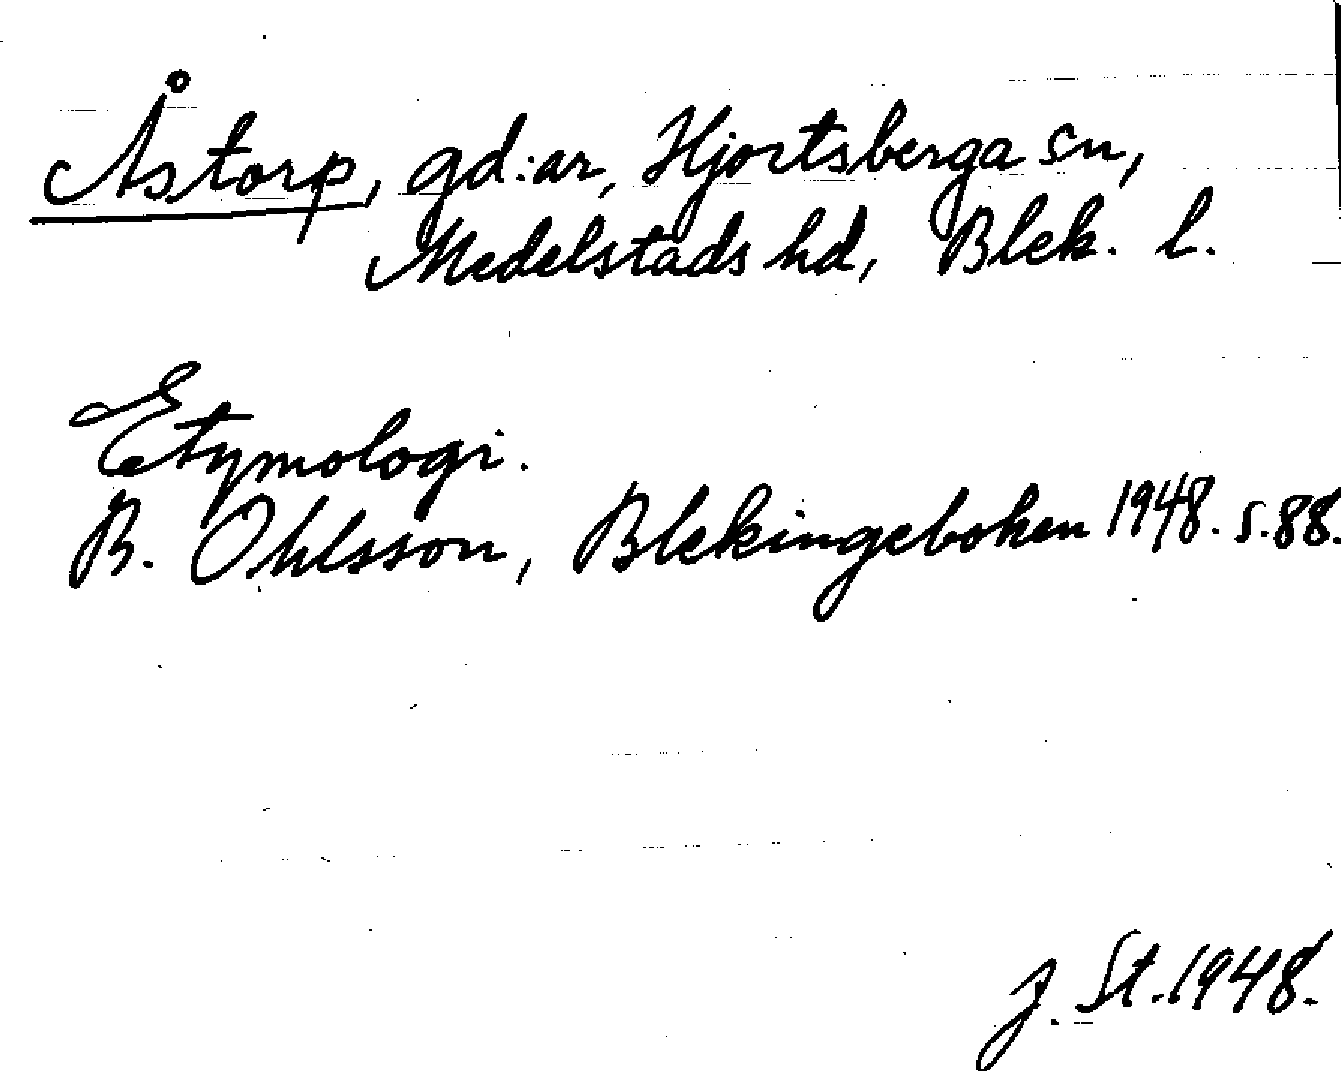 Åstorp, gd:ar, Hjortsberga sn,
Medelstads hd, Blek. l.
Etymologi.
B. Ohlsson, Blekingeboken 1948. s. 88.
J. St. 1948.